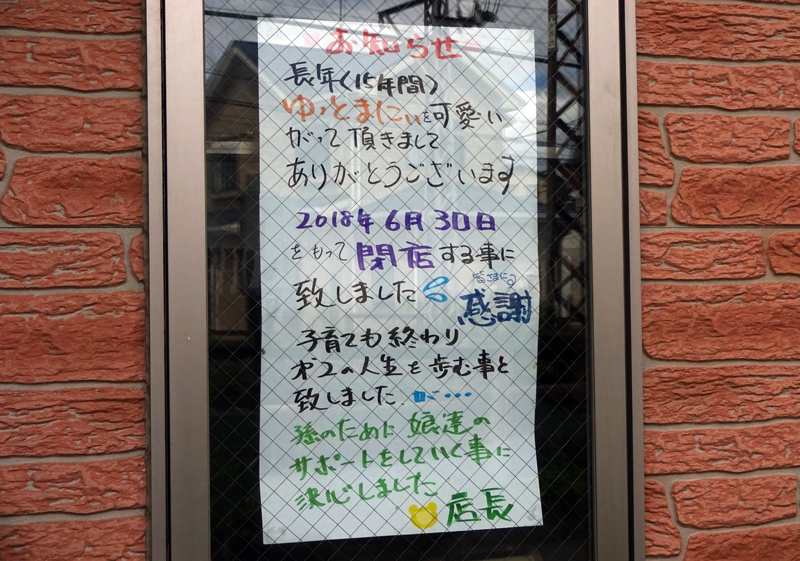 お知らせ
長年(15年間)
ゆっとまにぃを可愛い
がって頂きまして
ありがとうございます
2018年6月30日
をもって閉店する事に
致しました
皆さまに
感謝
子育ても終わり
第2の人生を歩む事と
致しました が…
孫のために 娘達の
サポートをしていく事に
決心しました
店長